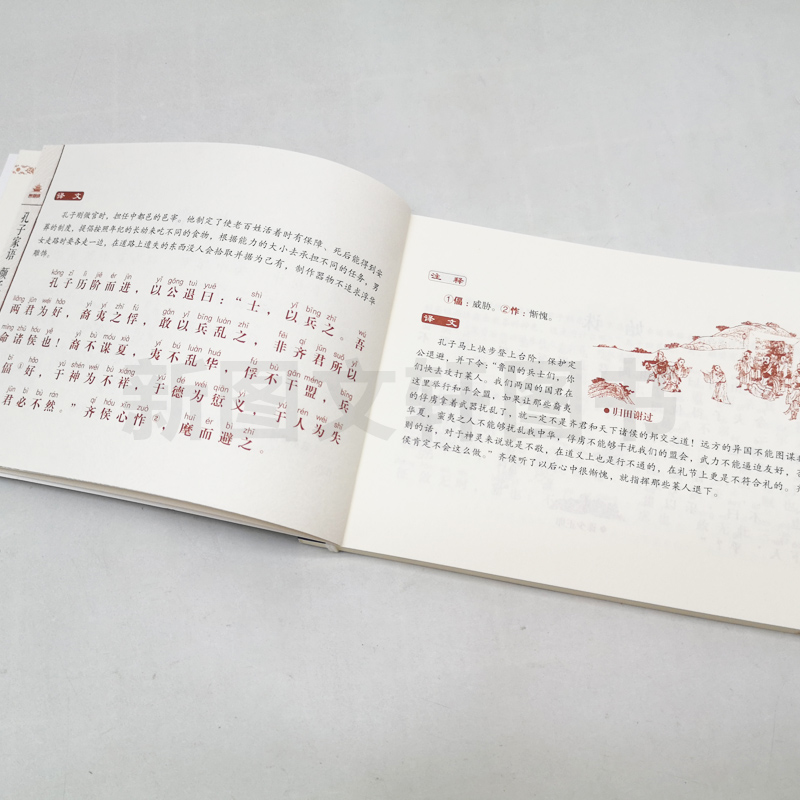 孔子家语
译文
孔子刚做官时，担任中都邑的邑宰。他制定了使老百姓活着时有保障、死后能得到安
葬的制度，提倡按照年纪的长幼来吃不同的食物，根据能力的大小去承担不同的任务，男
女走路时要各走一边，在道路上遗失的东西没人会拾取并据为己有，制作器物不追求浮华
雕饰。
kǒng zǐ lì jiē ér jìn yǐ gōng tuì yuē shì yǐ bīng zhī wú
孔子历阶而进，以公退曰：“士，以兵之。吾
liǎng jūn wéi hǎo yì yí zhī fú gǎn yǐ bīng luàn zhī fēi qí jūn suǒ yǐ
两君为好，裔夷之俘，敢以兵乱之，非齐君所以
mìng zhū hóu yě yì bù móu xià yí bú luàn huá fú bù gān méng bīng
命诸侯也！裔不谋夏，夷不乱华，俘不干盟，兵
hǎo yú shén wéi bù xiáng yú dé wéi qiān yì yú rén wéi shī
偪①好，于神为不祥，于德为愆义，于人为失
jūn bì bù rán qí hóu xīn zuò huī ér bì zhī
君必不然。”齐侯心怍，麾而避之。
注释
①偪：威胁。②怍：惭愧。
译文
孔子马上快步登上台阶，保护定
公退避，并下令：“鲁国的兵士们，你
们快去攻打莱人。我们两国的国君在
这里举行和平会盟，如果让那些裔夷
的俘虏拿着武器扰乱了，就一定不是齐君和天下诸侯的邦交之道！远方的异国不能图谋
华夏，蛮夷之人不能够扰乱我中华，俘虏不能够干扰我们的盟会，武力不能逼迫友好，否
则的话，对于神灵来说就是不敬，在道义上也是行不通的，在礼节上更是不符合礼的。
侯肯定不会这么做。”齐侯听了以后心中很惭愧，就指挥那些莱人退下。
归田谢过
新图文
书